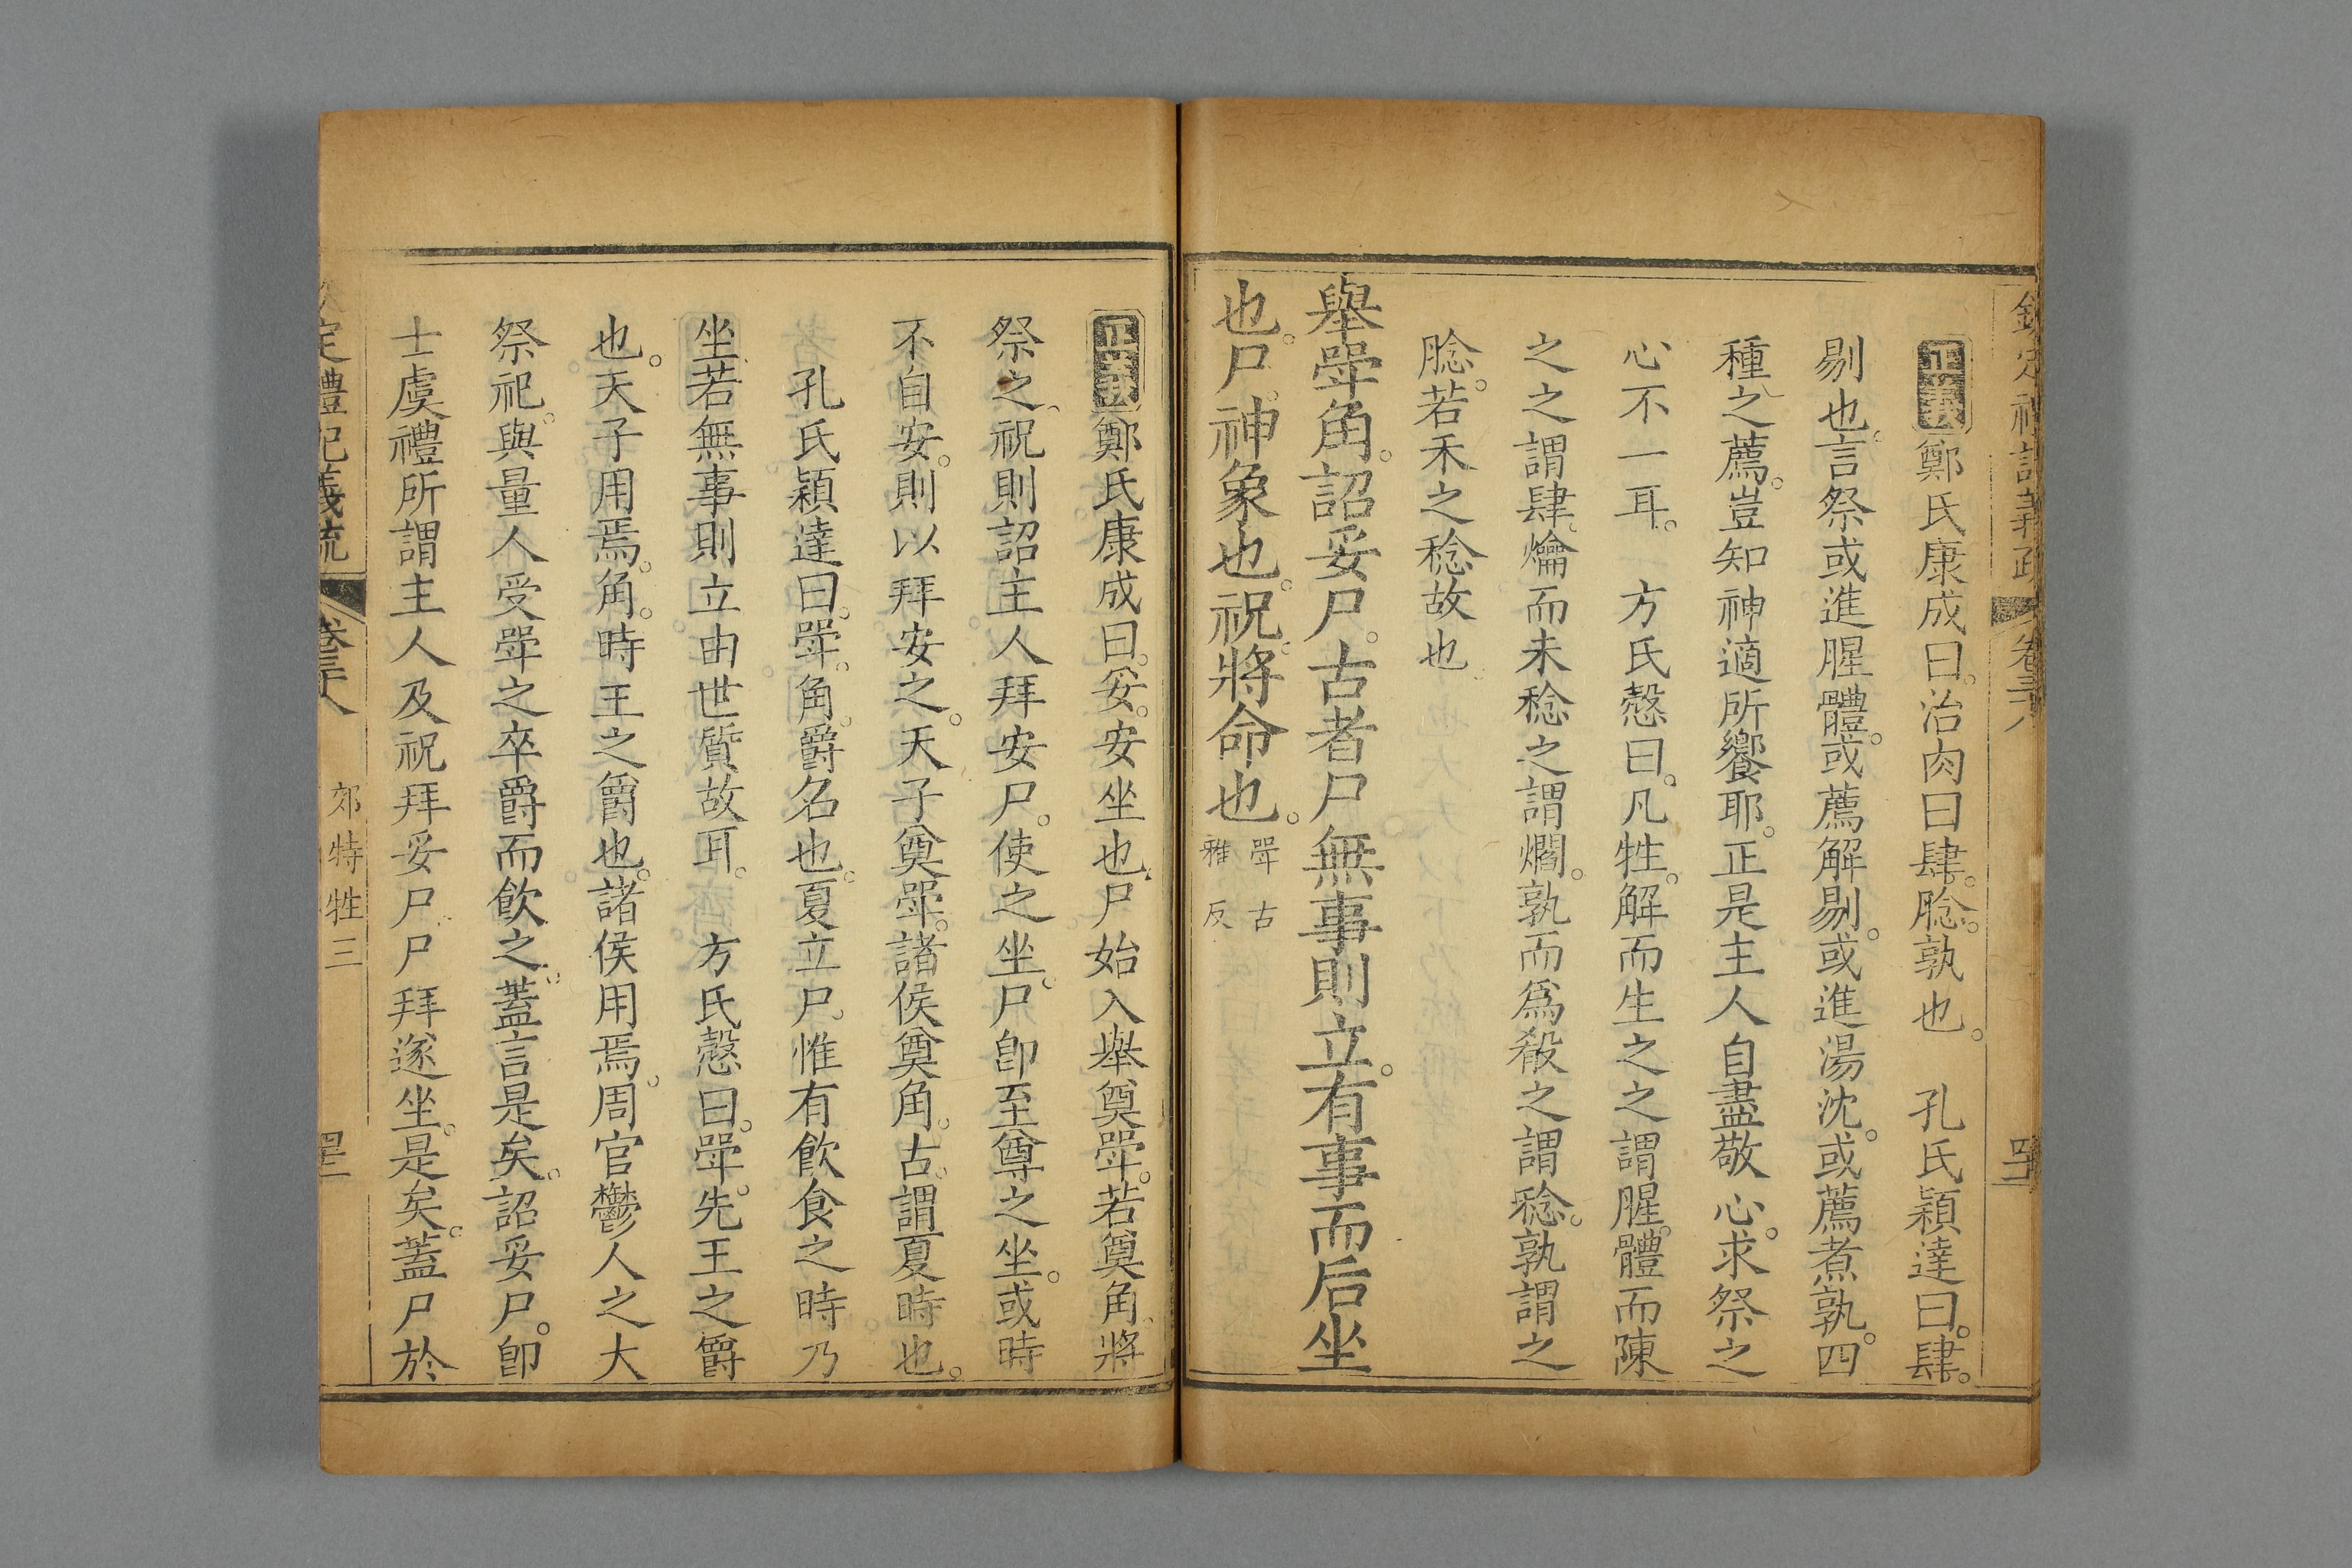 欽定禮記義疏 卷三十八
正義鄭氏康成曰治肉曰肆腍孰也 孔氏穎達曰肆
剔也言祭或進腥體或薦解剔或進湯沈或薦煮孰四
種之薦豈知神適所饗耶正是主人自盡敬心求祭之
心不一耳 方氏慤曰凡牲解而生之之謂腥體而陳
之之謂肆爓而未稔之謂爓孰而爲殽之謂稔孰謂之
腍若禾之稔故也
舉斝角詔妥尸古者尸無事則立有事而后坐
也尸神象也祝將命也斝古
雅反
正義鄭氏康成曰妥安坐也尸始入舉奠斝若奠角將
祭之祝則詔主人拜安尸使之坐尸卽至尊之坐或時
不自安則以拜安之天子奠斝諸侯奠角古謂夏時也
孔氏穎達曰斝角爵名也夏立尸惟有飲食之時乃
坐若無事則立由世質故耳 方氏慤曰斝先王之爵
也天子用焉角時王之爵也諸侯用焉周官鬱人之大
祭祀與量人受斝之卒爵而飲之蓋言是矣詔妥尸卽
士虞禮所謂主人及祝拜妥尸尸拜遂坐是矣蓋尸於
定禮記義疏 卷三十八 郊特牲三